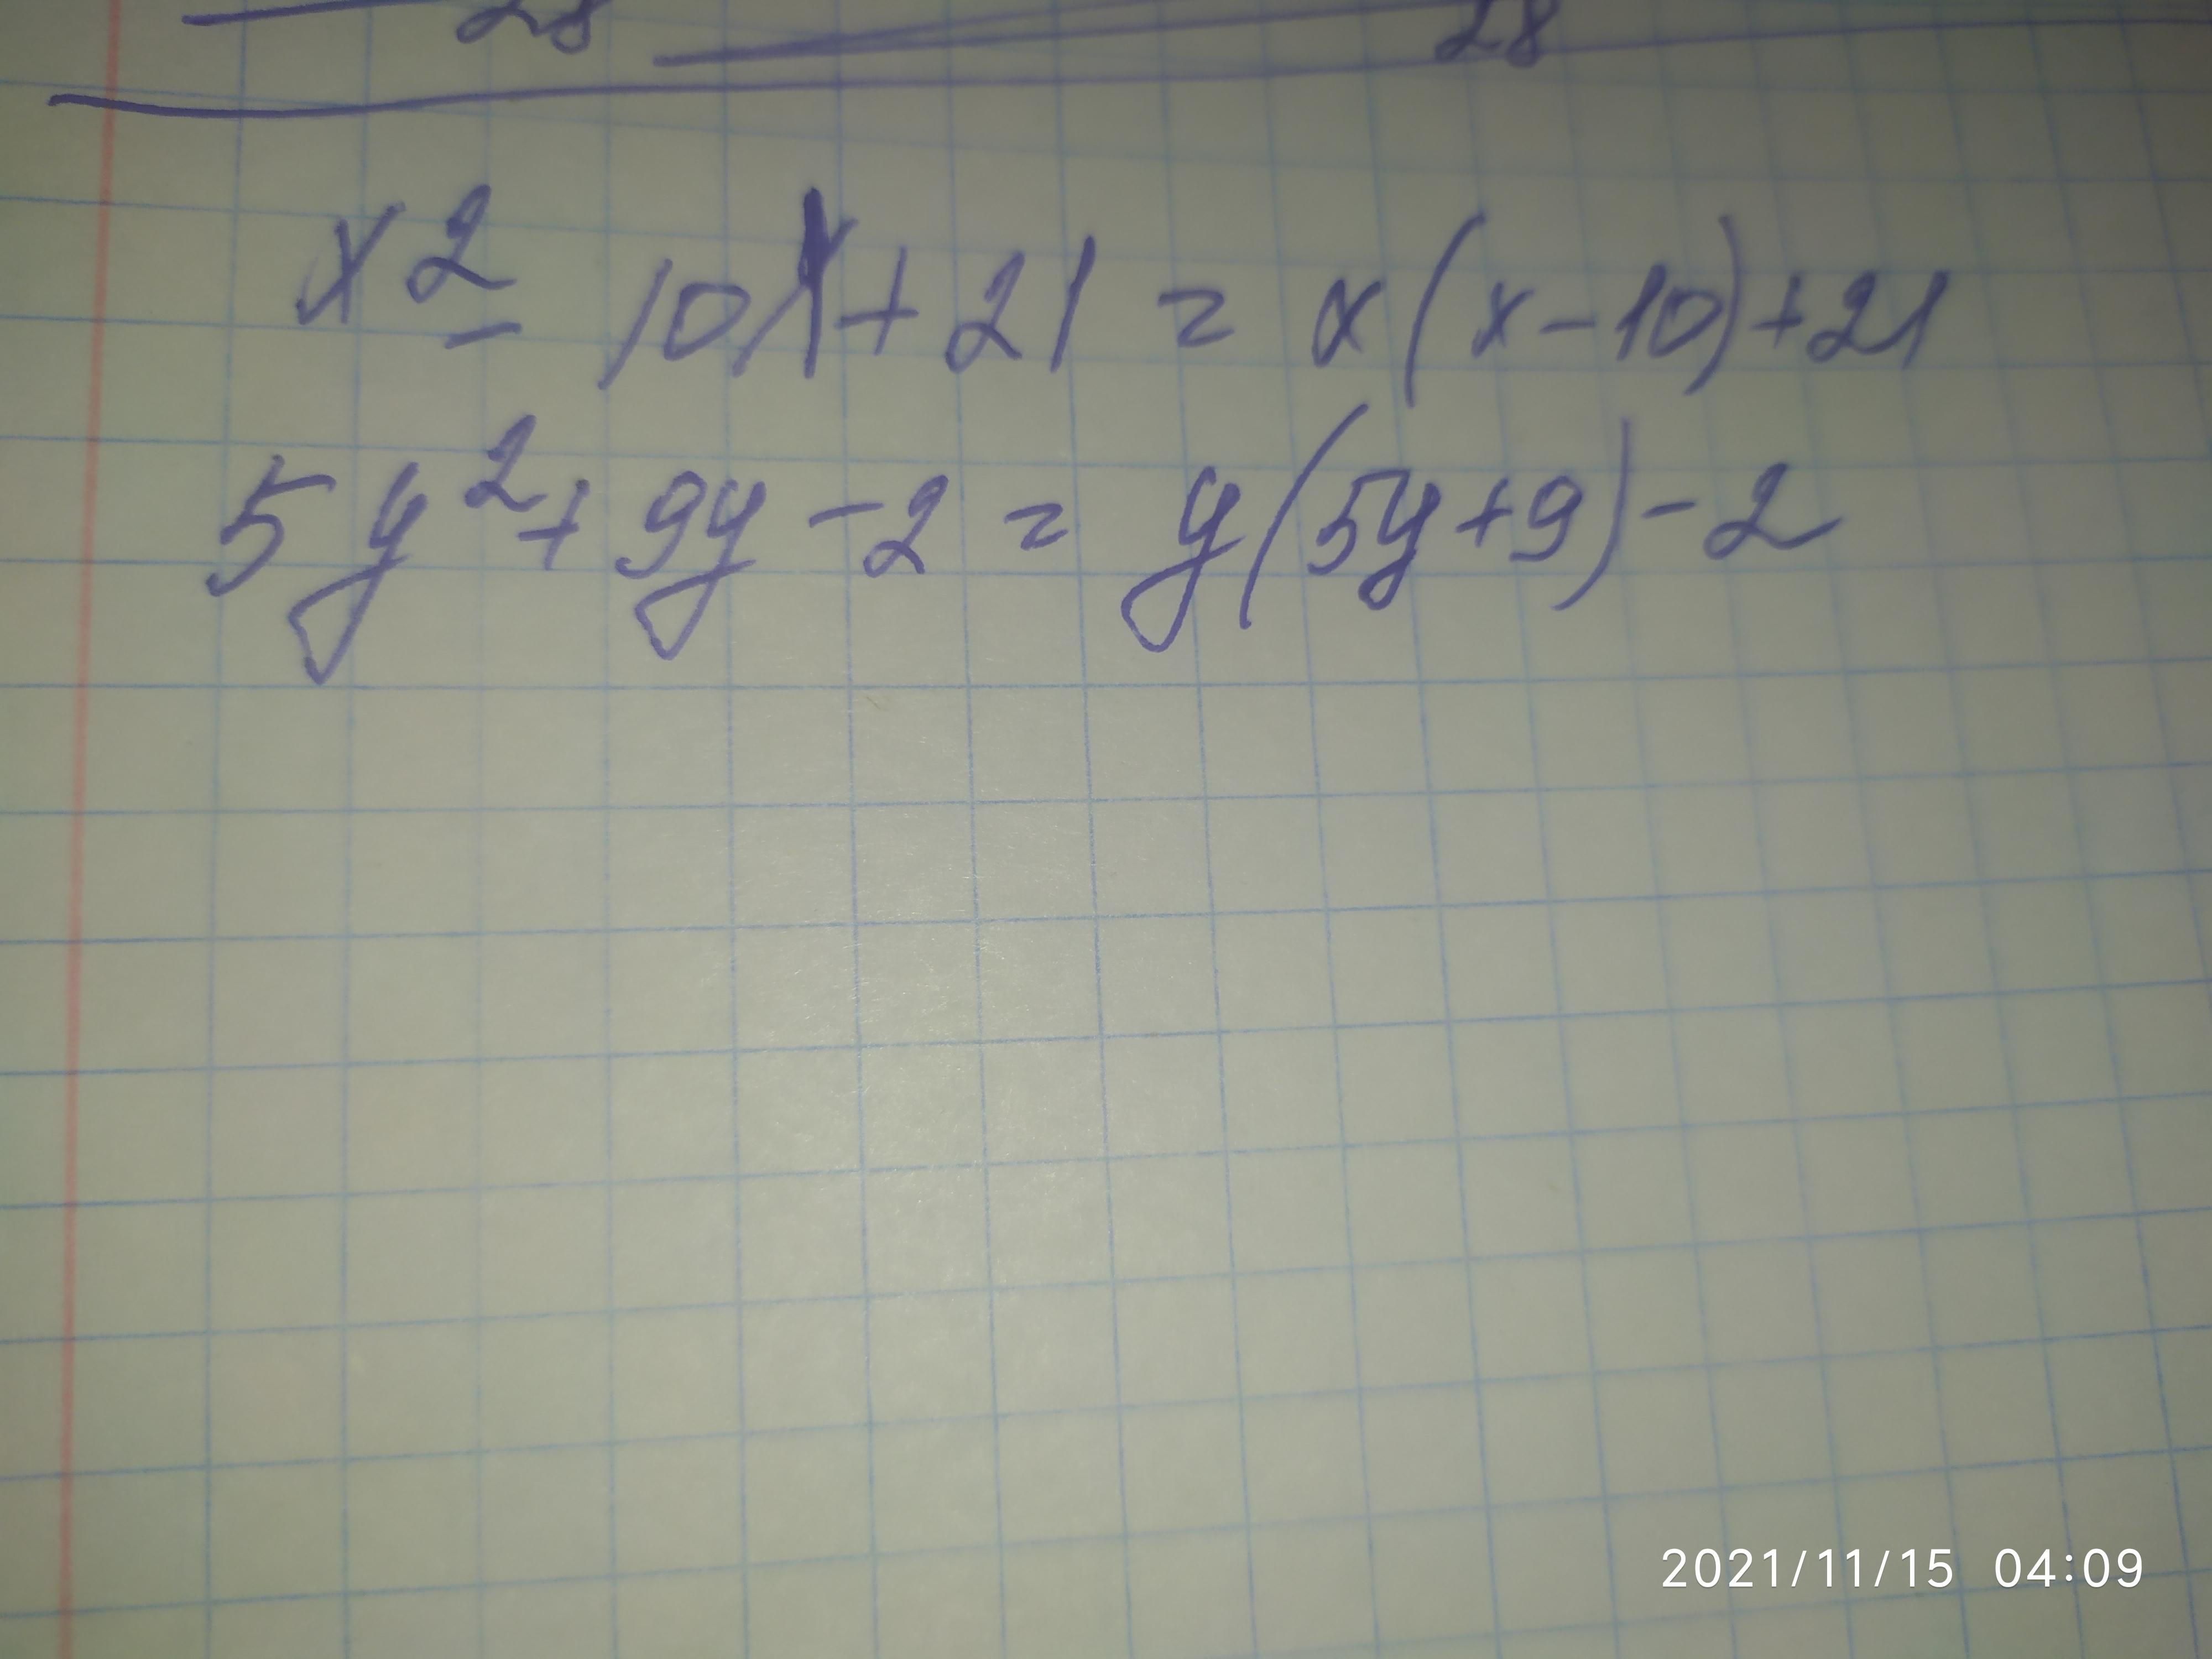 28 28
x² - 10x + 21 = x(x-10)+21
5y² + 9y - 2 = y(5y+9)-2
2021/11/15 04:09